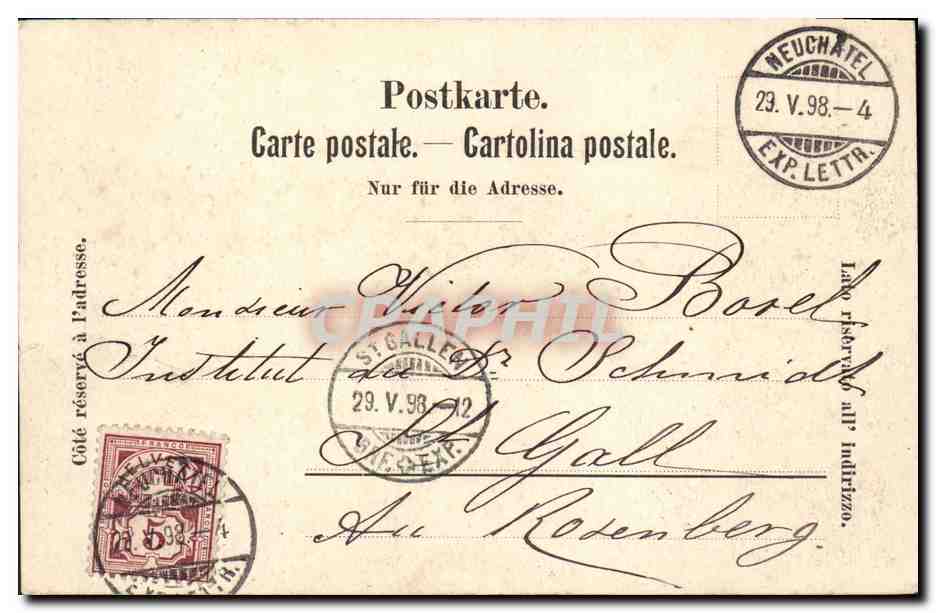 Postkarte.
Carte postale. — Cartolina postale.
Nur für die Adresse.
NEUCHATEL
29. V. 98. — 4
EXP. LETTR.
Côté réservé à l'adresse.
Lato riservato all' indirizzo.
Monsieur Victor Borel
Institut du Dr Schmidt
St Gall
Au Rosenberg
CPAPHIL
ST GALLEN
29. V. 98 — 12
BRF. EXP.
FRANCO
HELVETIA
5
98 — 4